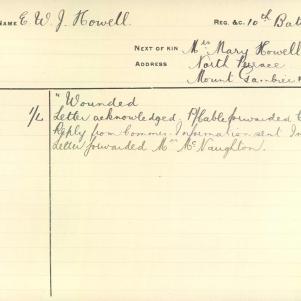 NAME E. W. J. Howell. REG. &C. 10th Bat
NEXT OF KIN Mrs Mary Howell
ADDRESS North Terrace
Mount Gambier
"Wounded
1/L Letter acknowledged. P/Cable forwarded t
Reply from Commr. Information sent In
Letter forwarded Mrs McNaughton.